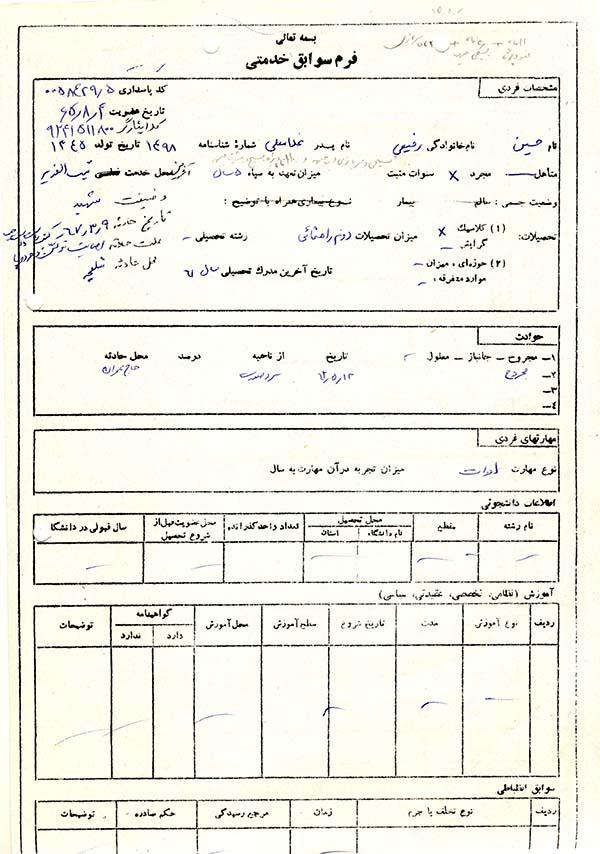 بسمه تعالی
فرم سوابق خدمتی
مشخصات فردی
کد پاسداری ۰۰۵۸۴۲۹/۵
تاریخ عضویت ۶۵/۸/۴
کد ایثارگر ۹۲۴۱۵۱۱۸۰۰
نام حسین نام خانوادگی رفیعی نام پدر غلامعلی شماره شناسنامه ۱۴۹۸ تاریخ تولد ۱۳۴۵
متأهل مجرد × سنوات مثبت میزان تعهد به سپاه ۵ سال آخرین محل خدمت تیپ الغدیر
وضعیت جسمی : سالم بیمار نوع بیماری همراه با توضیح : وضعیت شهید
تحصیلات: (۱) کلاسیک × میزان تحصیلات دوم راهنمائی رشته تحصیلی – تاریخ حادثه ۶۷/۳/۹
گرایش علت حادثه اصابت ترکش
(۲) حوزه‌ای ، میزان – تاریخ آخرین مدرک تحصیلی سال ۶۱ محل حادثه شلمچه
موارد متفرقه : –
حوادث
۱– مجروح – جانباز – معلول تاریخ از ناحیه درصد محل حادثه
۲– مجروح ۶۲/۵/۱۲
۳–
۴–
مهارتهای فردی
نوع مهارت ادوات میزان تجربه در آن مهارت به سال
اطلاعات دانشجوئی
نام رشته مقطع محل تحصیل تعداد واحد گذرانده محل عضویت قبل از شروع تحصیل سال قبولی در دانشگاه
نام دانشگاه استان
آموزش (نظامی، تخصصی، عقیدتی، سیاسی)
ردیف نوع آموزش مدت تاریخ شروع سطح آموزش محل آموزش گواهینامه توضیحات
دارد ندارد
سوابق انظباطی
ردیف نوع تخلف یا جرم زمان مرجع رسیدگی حکم صادره توضیحات